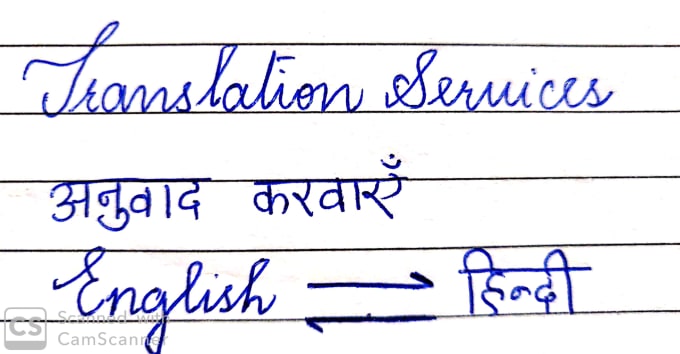 Translation Services
अनुवाद करवाएँ
English ⇌ हिन्दी
CS Scanned with
CamScanner